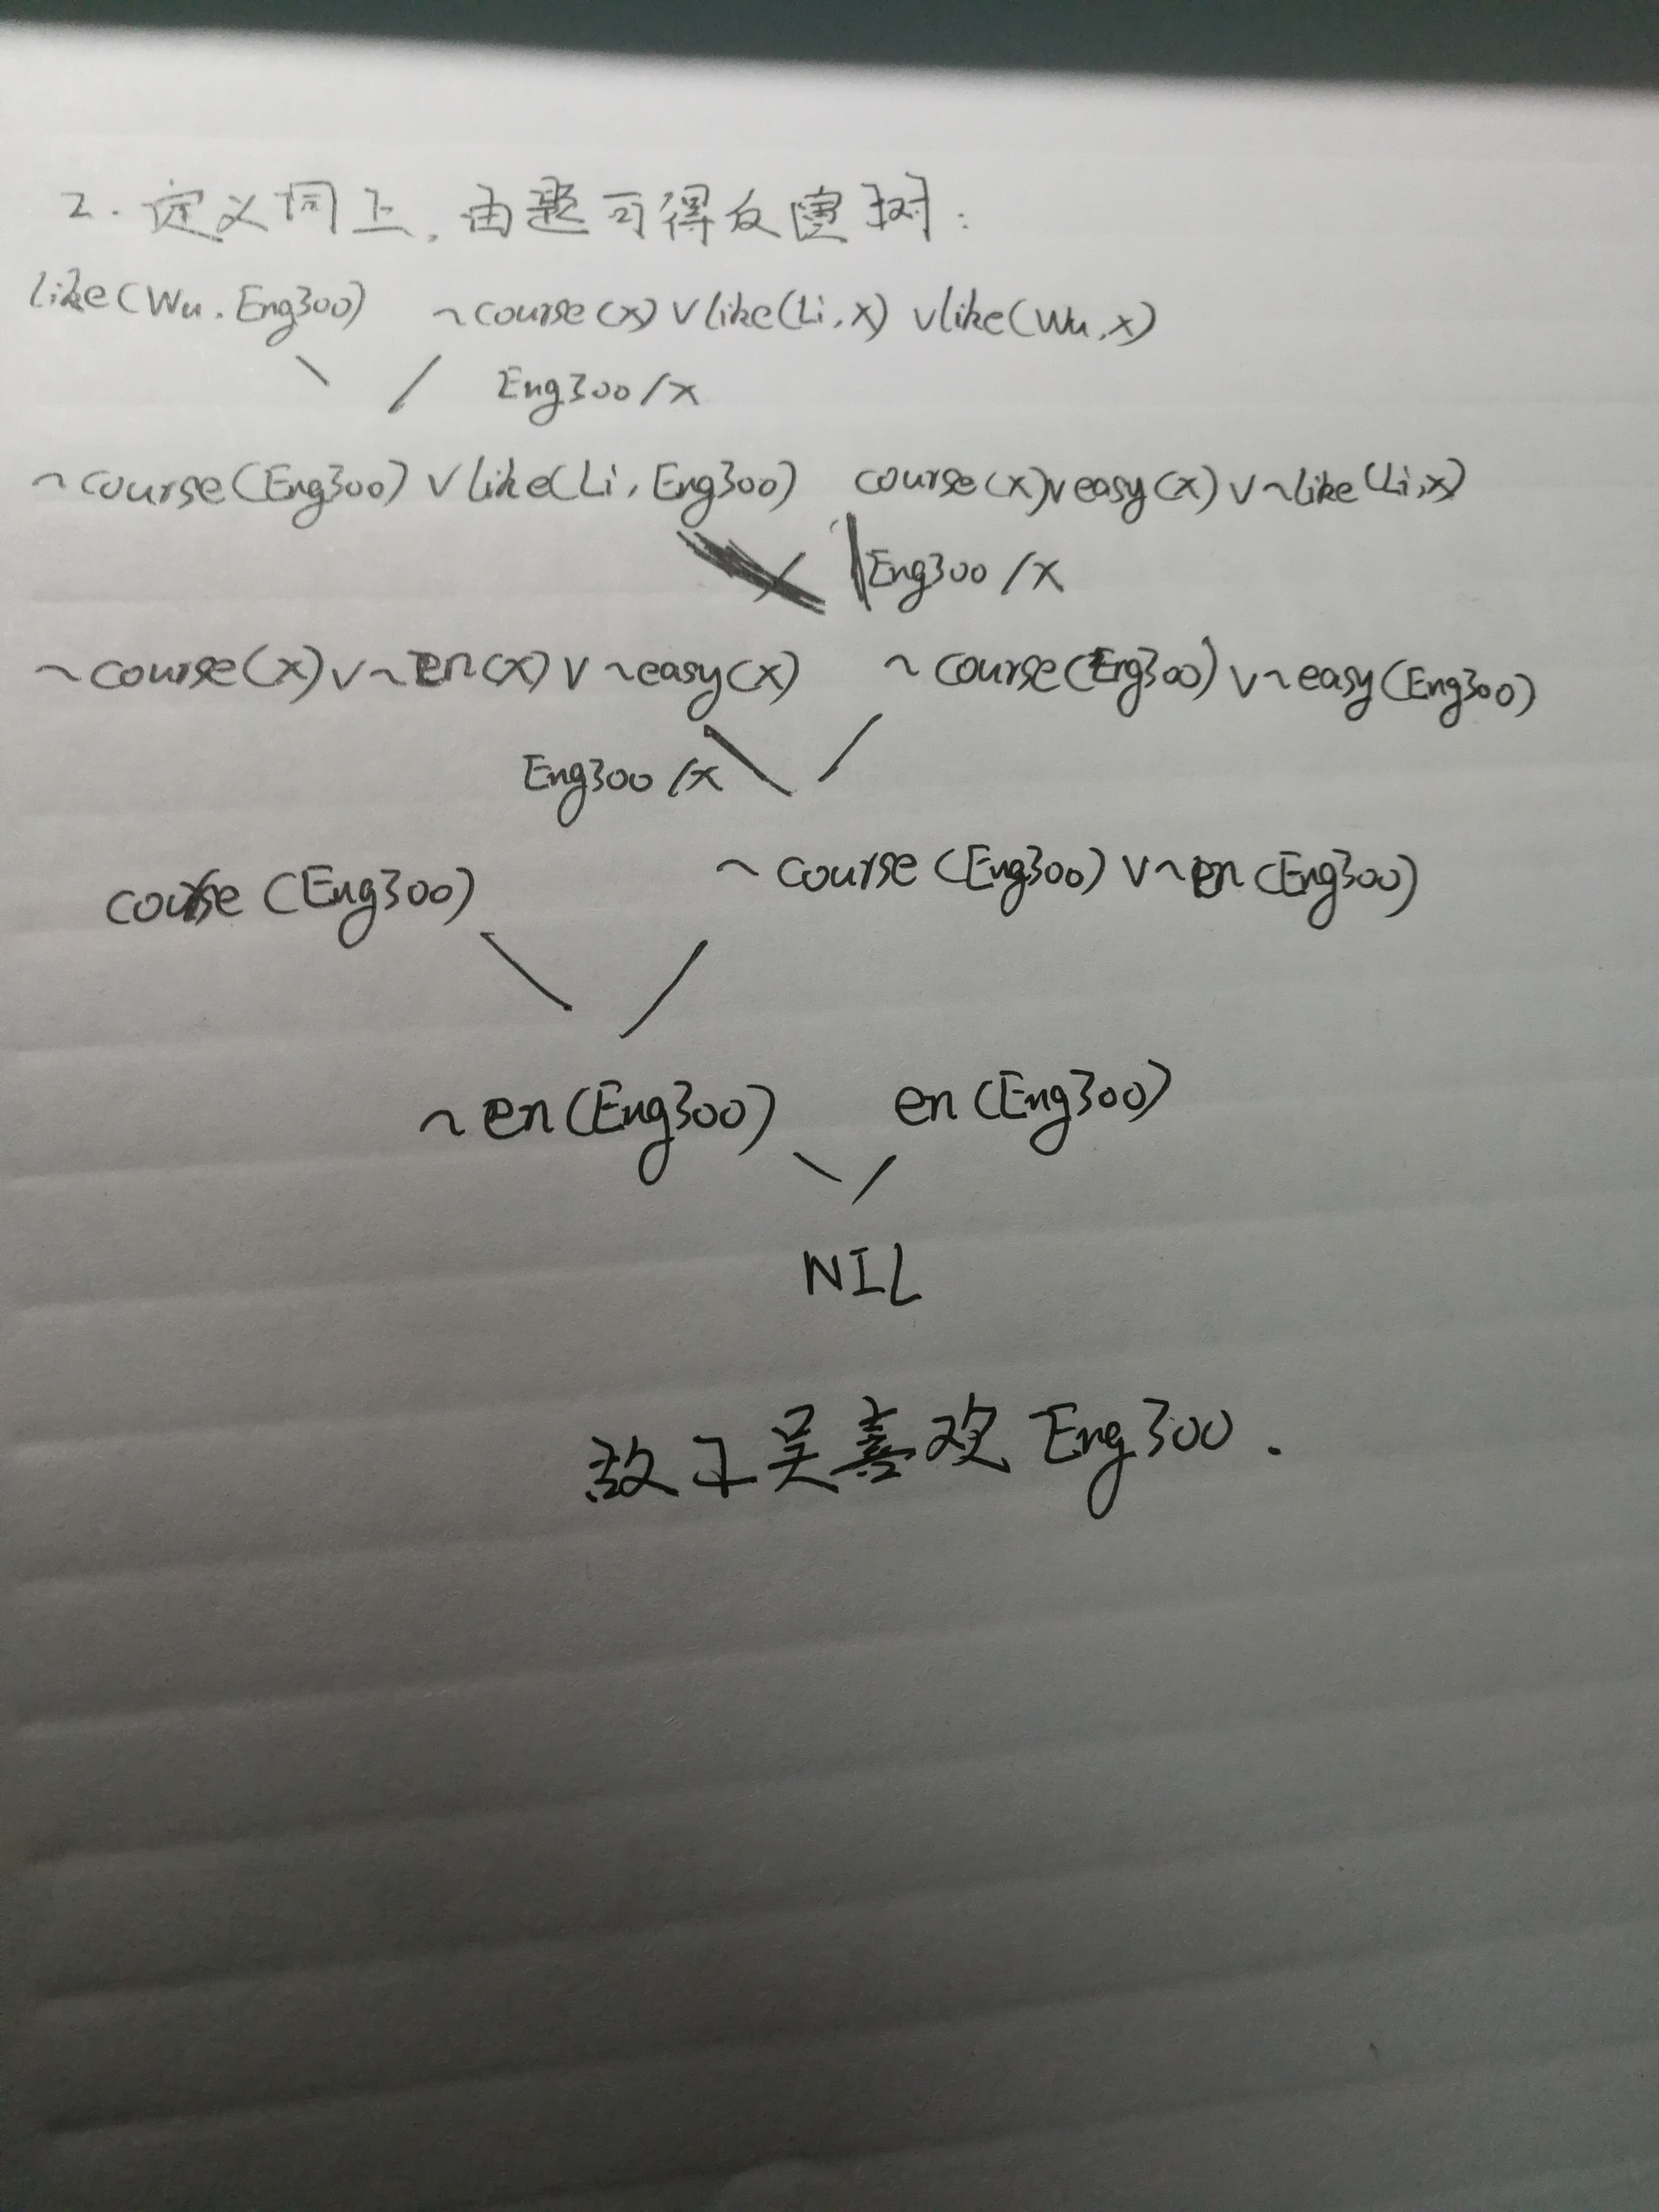 2. 定义同上,由题可得反演树:
like(Wu, Eng300) ~course(x) ∨ like(Li,x) ∨like(Wu,x)
Eng300/x
~course(Eng300) ∨ like(Li, Eng300) course(x)∨easy(x) ∨~like(Li,x)
Eng300/x
~course(x)∨~en(x) ∨ ~easy(x) ~course(Eng300) ∨~easy(Eng300)
Eng300/x
course (Eng300) ~course (Eng300) ∨~en (Eng300)
~en(Eng300) en(Eng300)
NIL
故 吴喜欢 Eng300.